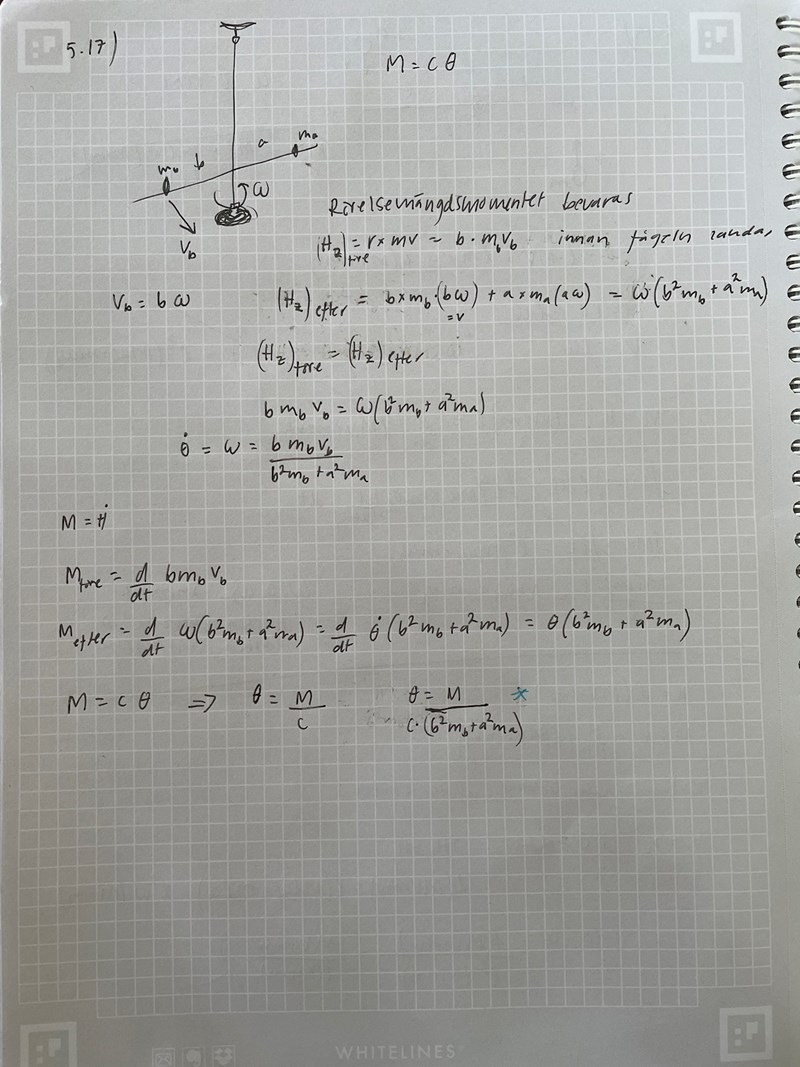 5.17)
M = c θ
a
m_a
m_b
b
ω
V_b
Rörelsemängdsmomentet bevaras
(H_z)_före = r × mv = b · m_b v_b innan fågeln landar
V_b = b ω
(H_z)_efter = b × m_b · (bω) + a × m_a (aω) = ω (b² m_b + a² m_a)
= v
(H_z)_före = (H_z)_efter
b m_b v_b = ω (b² m_b + a² m_a)
θ̇ = ω = b m_b v_b / (b² m_b + a² m_a)
M = Ḣ
M_före = d/dt b m_b v_b
M_efter = d/dt ω (b² m_b + a² m_a) = d/dt θ̇ (b² m_b + a² m_a) = θ (b² m_b + a² m_a)
M = c θ ⇒ θ = M / c θ = M / (c · (b² m_b + a² m_a)) *
WHITELINES®